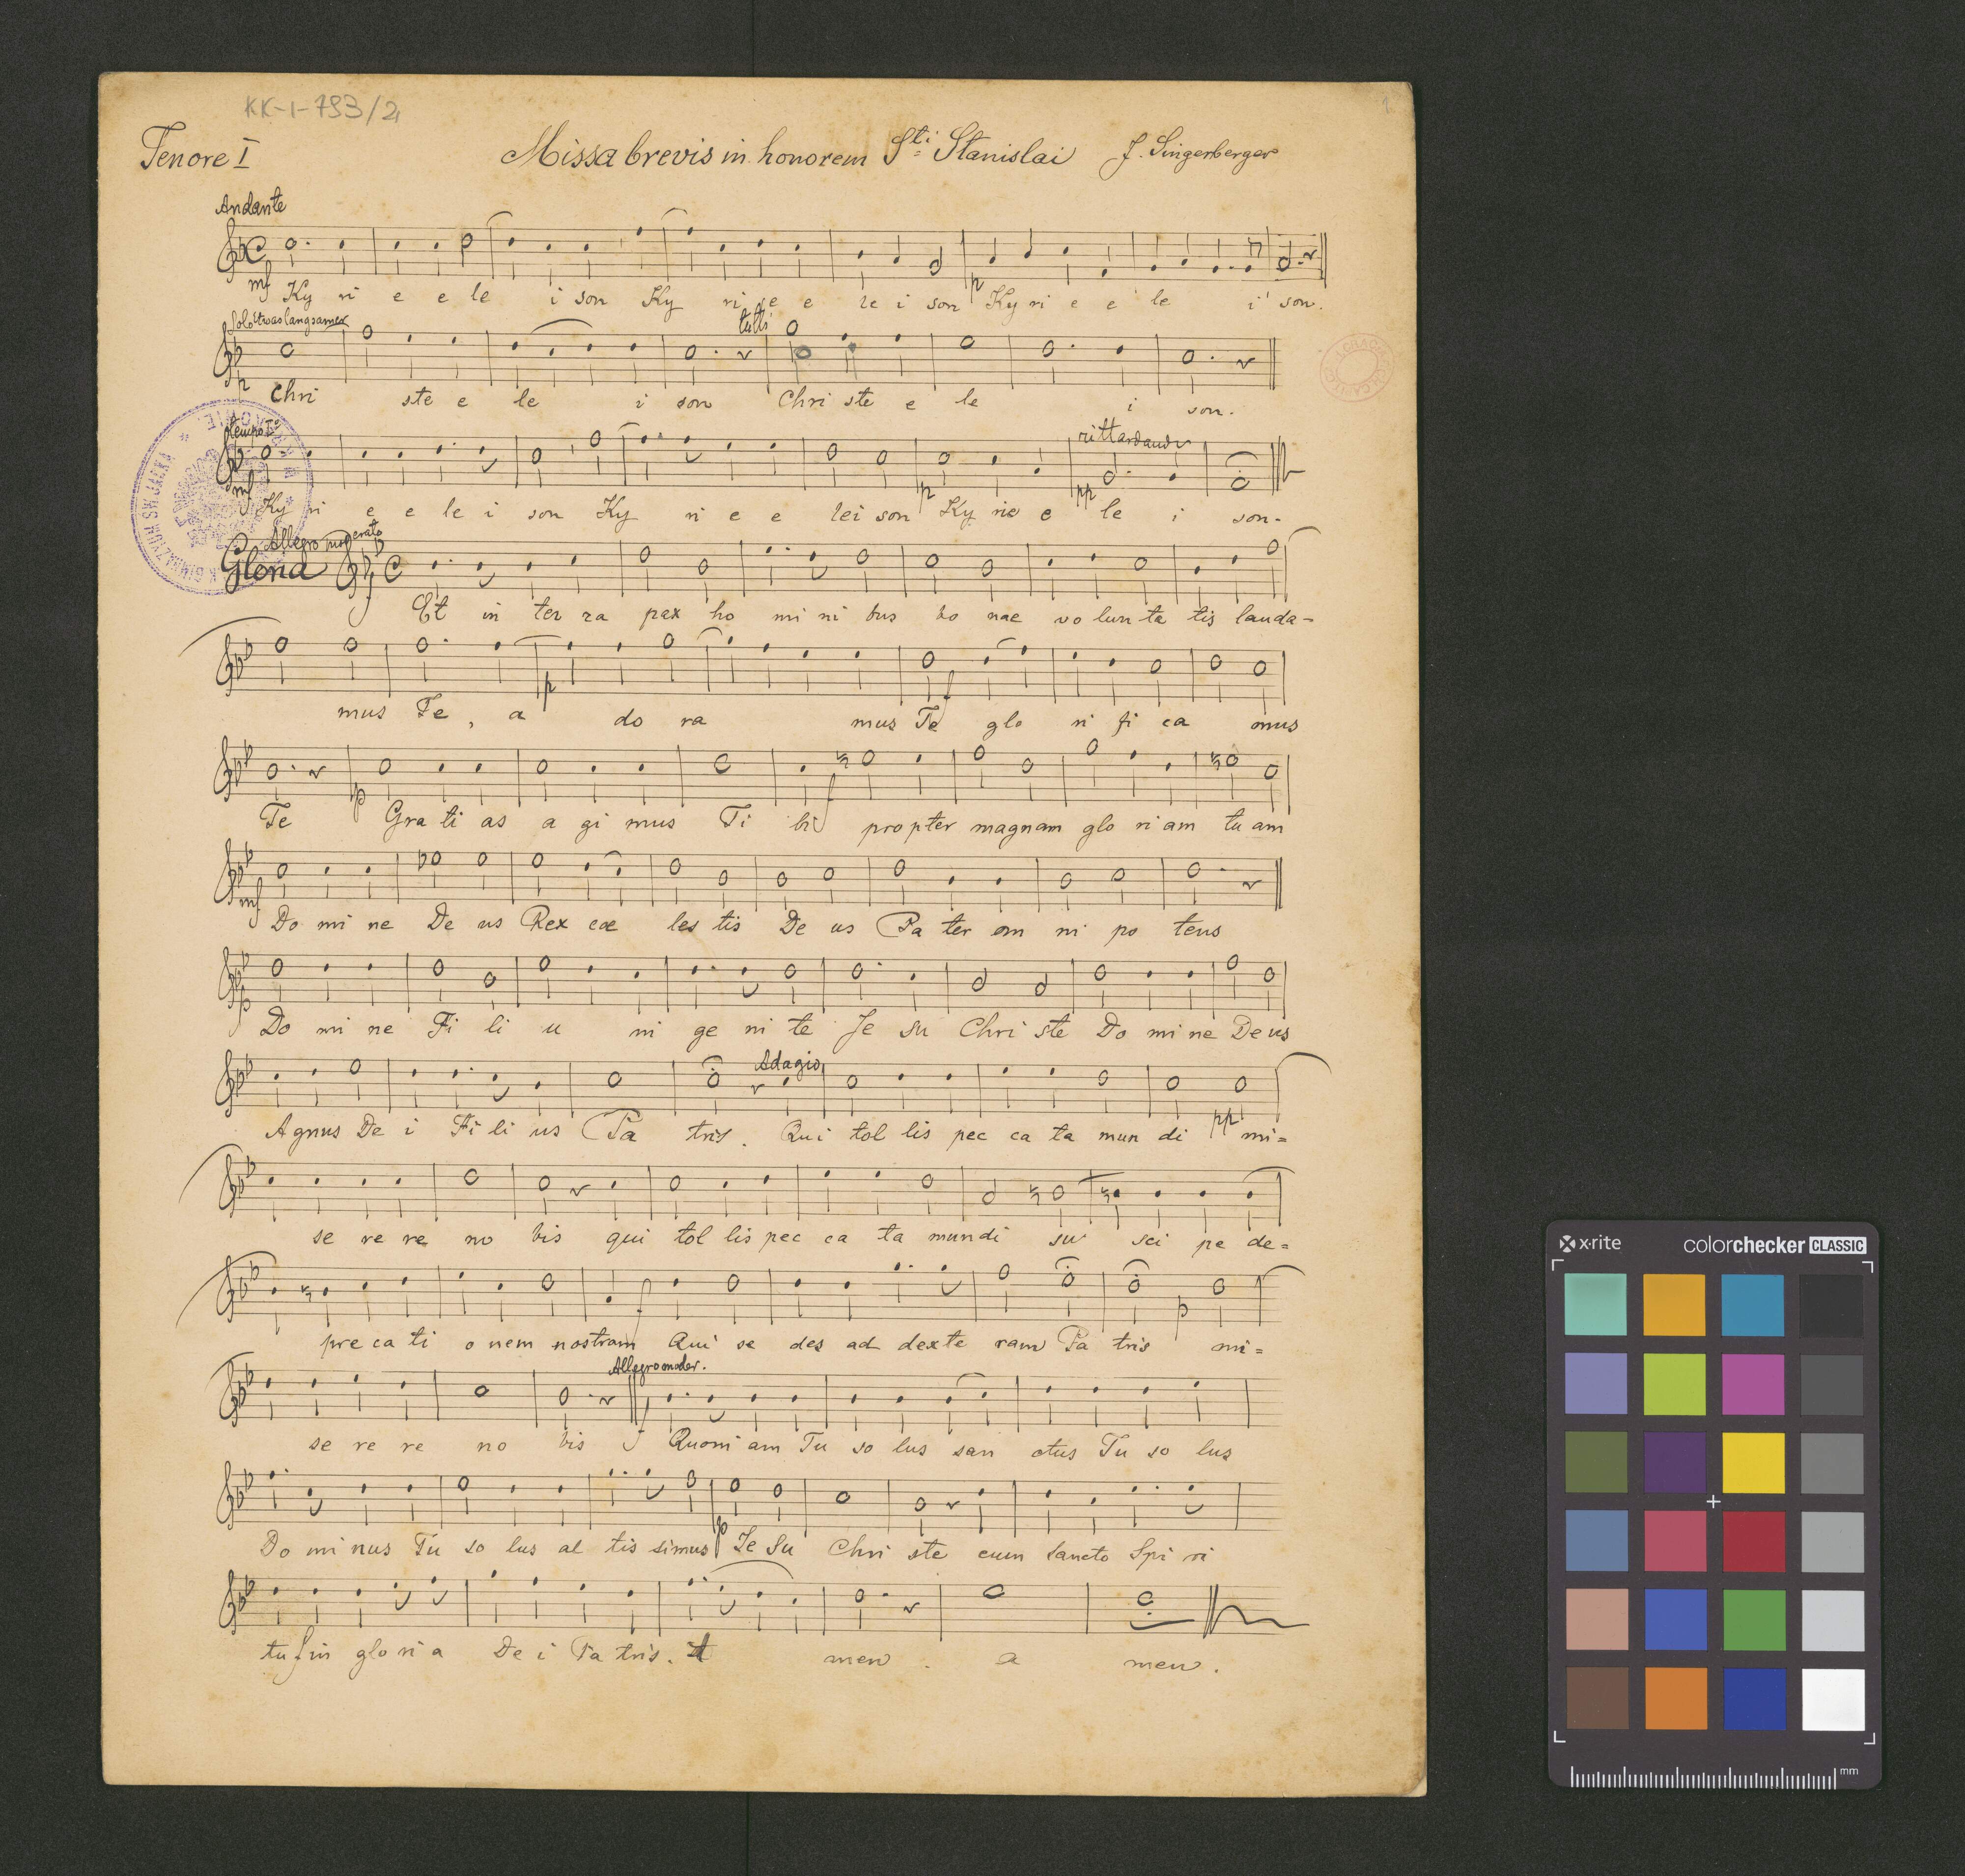 KK-I-793/2
1
Tenore I Missa brevis in honorem Sti Stanislai J. Singerberger
Andante
mf p
Ky ri e e le i son Ky ri e e le i son Ky ri e e le i son.
Solo etwas langsamer tutti
p
Chri ste e le i son Chri ste e le i son.
tempo I
rittardando
mf p pp
Ky ri e e le i son Ky ri e e lei son Ky rie e le i son.
Allegro moderato
Gloria
f
Et in ter ra pax ho mi ni bus bo nae vo lun ta tis lauda-
p f
mus Te, a do ra mus Te glo ri fi ca mus
p f
Te Gra ti as a gi mus Ti bi propter magnam glo ri am tu am
mf
Do mi ne De us Rex cæ les tis De us Pa ter om ni po tens
p
Do mi ne Fi li u ni ge ni te Je su Chri ste Do mi ne De us
Adagio
Agnus De i Fi li us Pa tris. Qui tol lis pec ca ta mun di pp mi=
se re re no bis qui tol lis pec ca ta mundi su sci pe de=
f p
pre ca ti o nem nostram Qui se des ad dexte ram Pa tris mi=
Allegro moder.
se re re no bis f Quoni am Tu so lus san ctus Tu so lus
p
Do mi nus Tu so lus al tis simus Je Su Chri ste cum Sancto Spi ri
tu f in glo ri a De i Pa tris. A men. a men.
x·rite colorchecker CLASSIC
mm